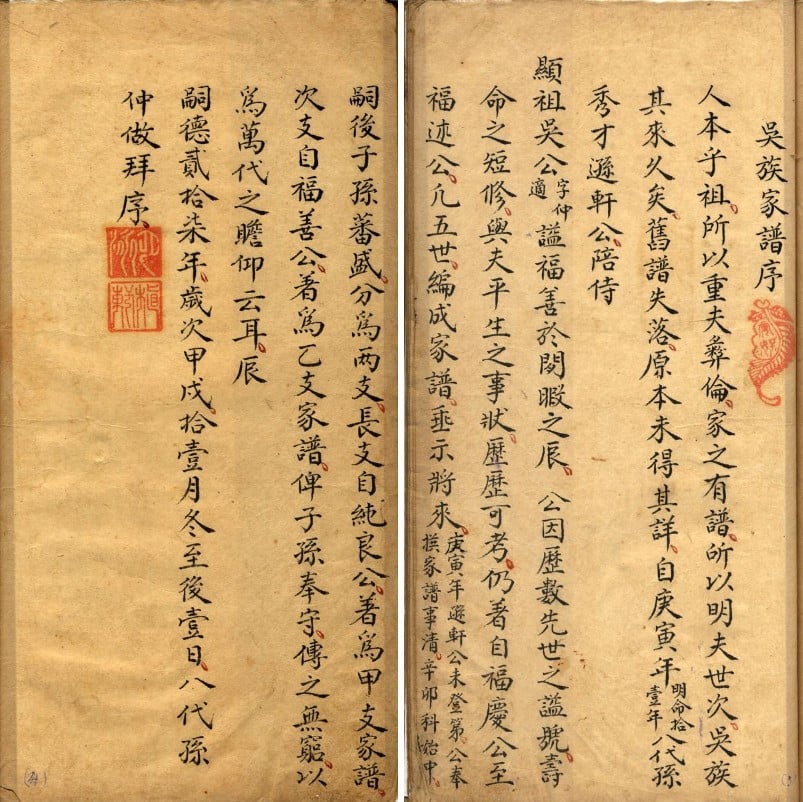 吳族家譜序
人本乎祖所以重夫彝倫家之有譜所以明夫世次吳族
其來久矣舊譜失落原本未得其詳自庚寅年明命拾壹年八代孫
秀才遜軒公陪侍
顯祖吳公字仲適謚福善於閑暇之辰公因歷數先世之謚號壽
命之短修與夫平生之事狀歷歷可考仍著自福慶公至
福述公凡五世編成家譜垂示將來庚寅年遜軒公未登第公奉撰家譜事清辛卯科始中
嗣後子孫蕃盛分爲兩支長支自純良公著爲甲支家譜
次支自福善公著爲乙支家譜俾子孫奉守傳之無窮以
爲萬代之瞻仰云耳辰
嗣德貳拾柒年歲次甲戌拾壹月冬至後壹日八代孫
仲做拜序